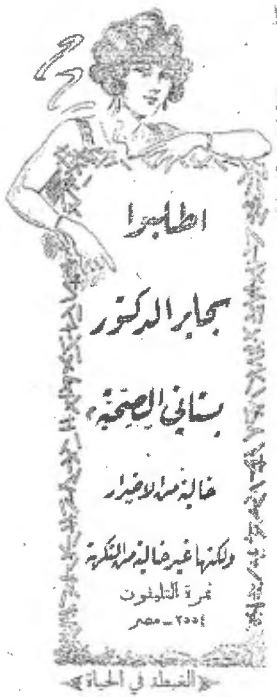 اطلبوا
سجاير الدكتور
بستاني الصحية،
خالية من الاضرار
ولكنها غير خالية من النكهة
نمرة التليفون
٢٥٥٤ - مصر
الغبطة في الحياة